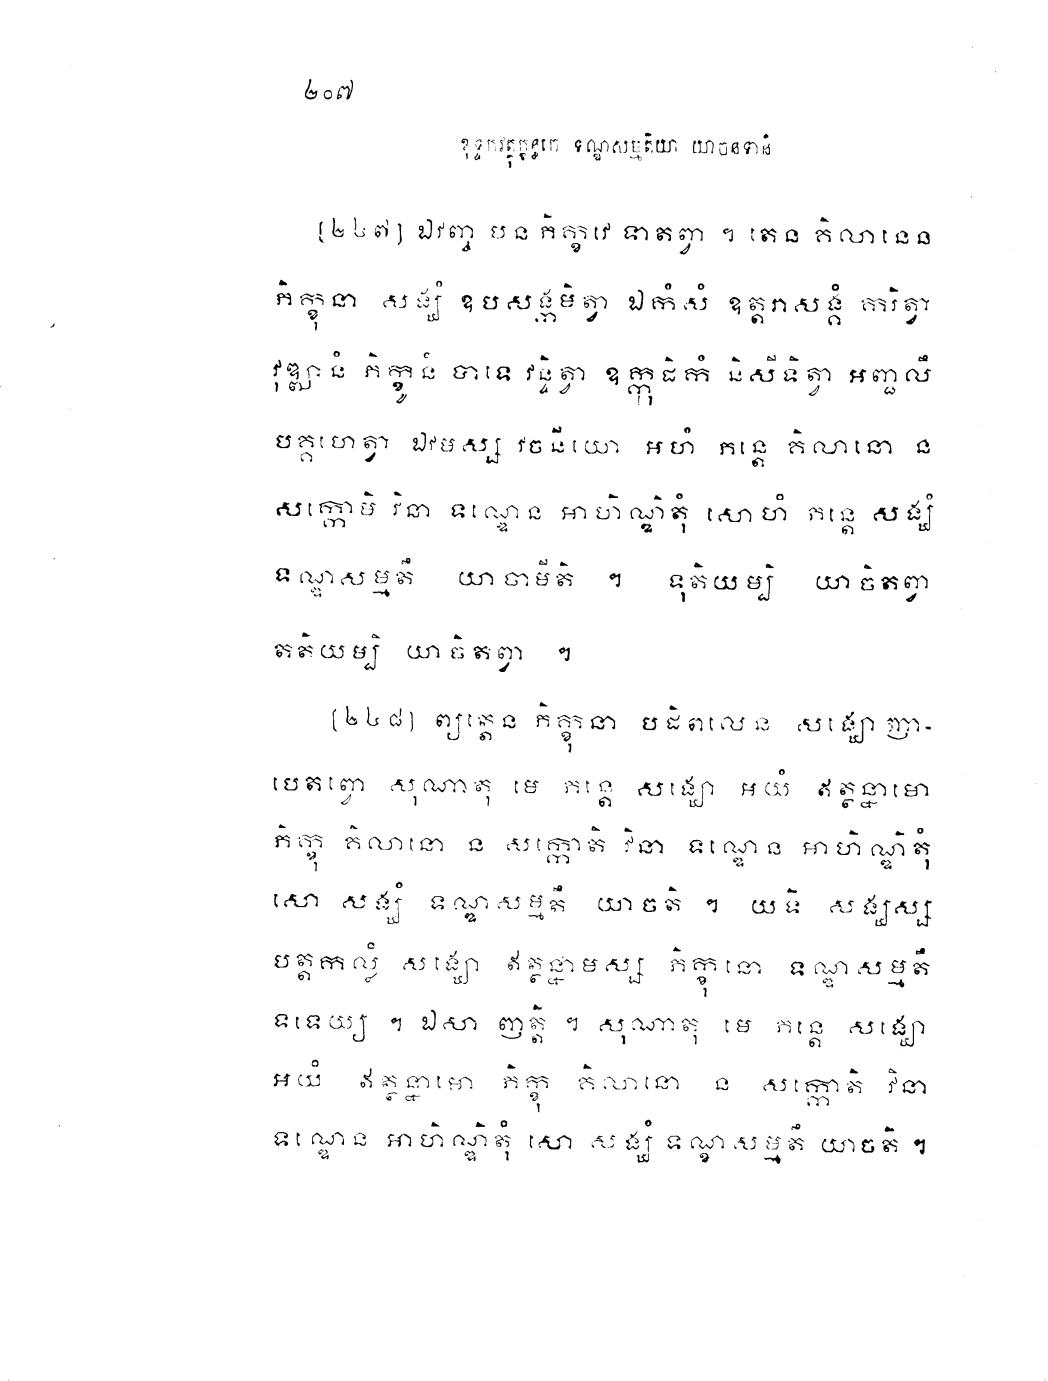 ២០៧
ខុទ្ទកវត្ថុក្ខន្ធកេ ទណ្ឌសម្មតិយា យាចនទានំ
[២៤៧] ឯវញ្ច បន ភិក្ខវេ ទាតព្វា ។ តេន គិលានេន
ភិក្ខុនា សង្ឃំ ឧបសង្កមិត្វា ឯកំសំ ឧត្តរាសង្គំ ករិត្វា
វុឌ្ឍានំ ភិក្ខូនំ បាទេ វន្ទិត្វា ឧក្កុដិកំ និសីទិត្វា អញ្ជលឹ
បគ្គហេត្វា ឯវមស្ស វចនីយោ អហំ ភន្តេ គិលានោ ន
សក្កោមិ វិនា ទណ្ឌេន អាហិណ្ឌិតុំ សោហំ ភន្តេ សង្ឃំ
ទណ្ឌសម្មតឹ យាចាមីតិ ។ ទុតិយម្បិ យាចិតព្វា
តតិយម្បិ យាចិតព្វា ។
[២៤៨] ព្យត្តេន ភិក្ខុនា បដិពលេន សង្ឃោ ញា-
បេតព្វោ សុណាតុ មេ ភន្តេ សង្ឃោ អយំ ឥត្ថន្នាមោ
ភិក្ខុ គិលានោ ន សក្កោតិ វិនា ទណ្ឌេន អាហិណ្ឌិតុំ
សោ សង្ឃំ ទណ្ឌសម្មតឹ យាចតិ ។ យទិ សង្ឃស្ស
បត្តកល្លំ សង្ឃោ ឥត្ថន្នាមស្ស ភិក្ខុនោ ទណ្ឌសម្មតឹ
ទទេយ្យ ។ ឯសា ញត្តិ ។ សុណាតុ មេ ភន្តេ សង្ឃោ
អយំ ឥត្ថន្នាមោ ភិក្ខុ គិលានោ ន សក្កោតិ វិនា
ទណ្ឌេន អាហិណ្ឌិតុំ សោ សង្ឃំ ទណ្ឌសម្មតឹ យាចតិ ។